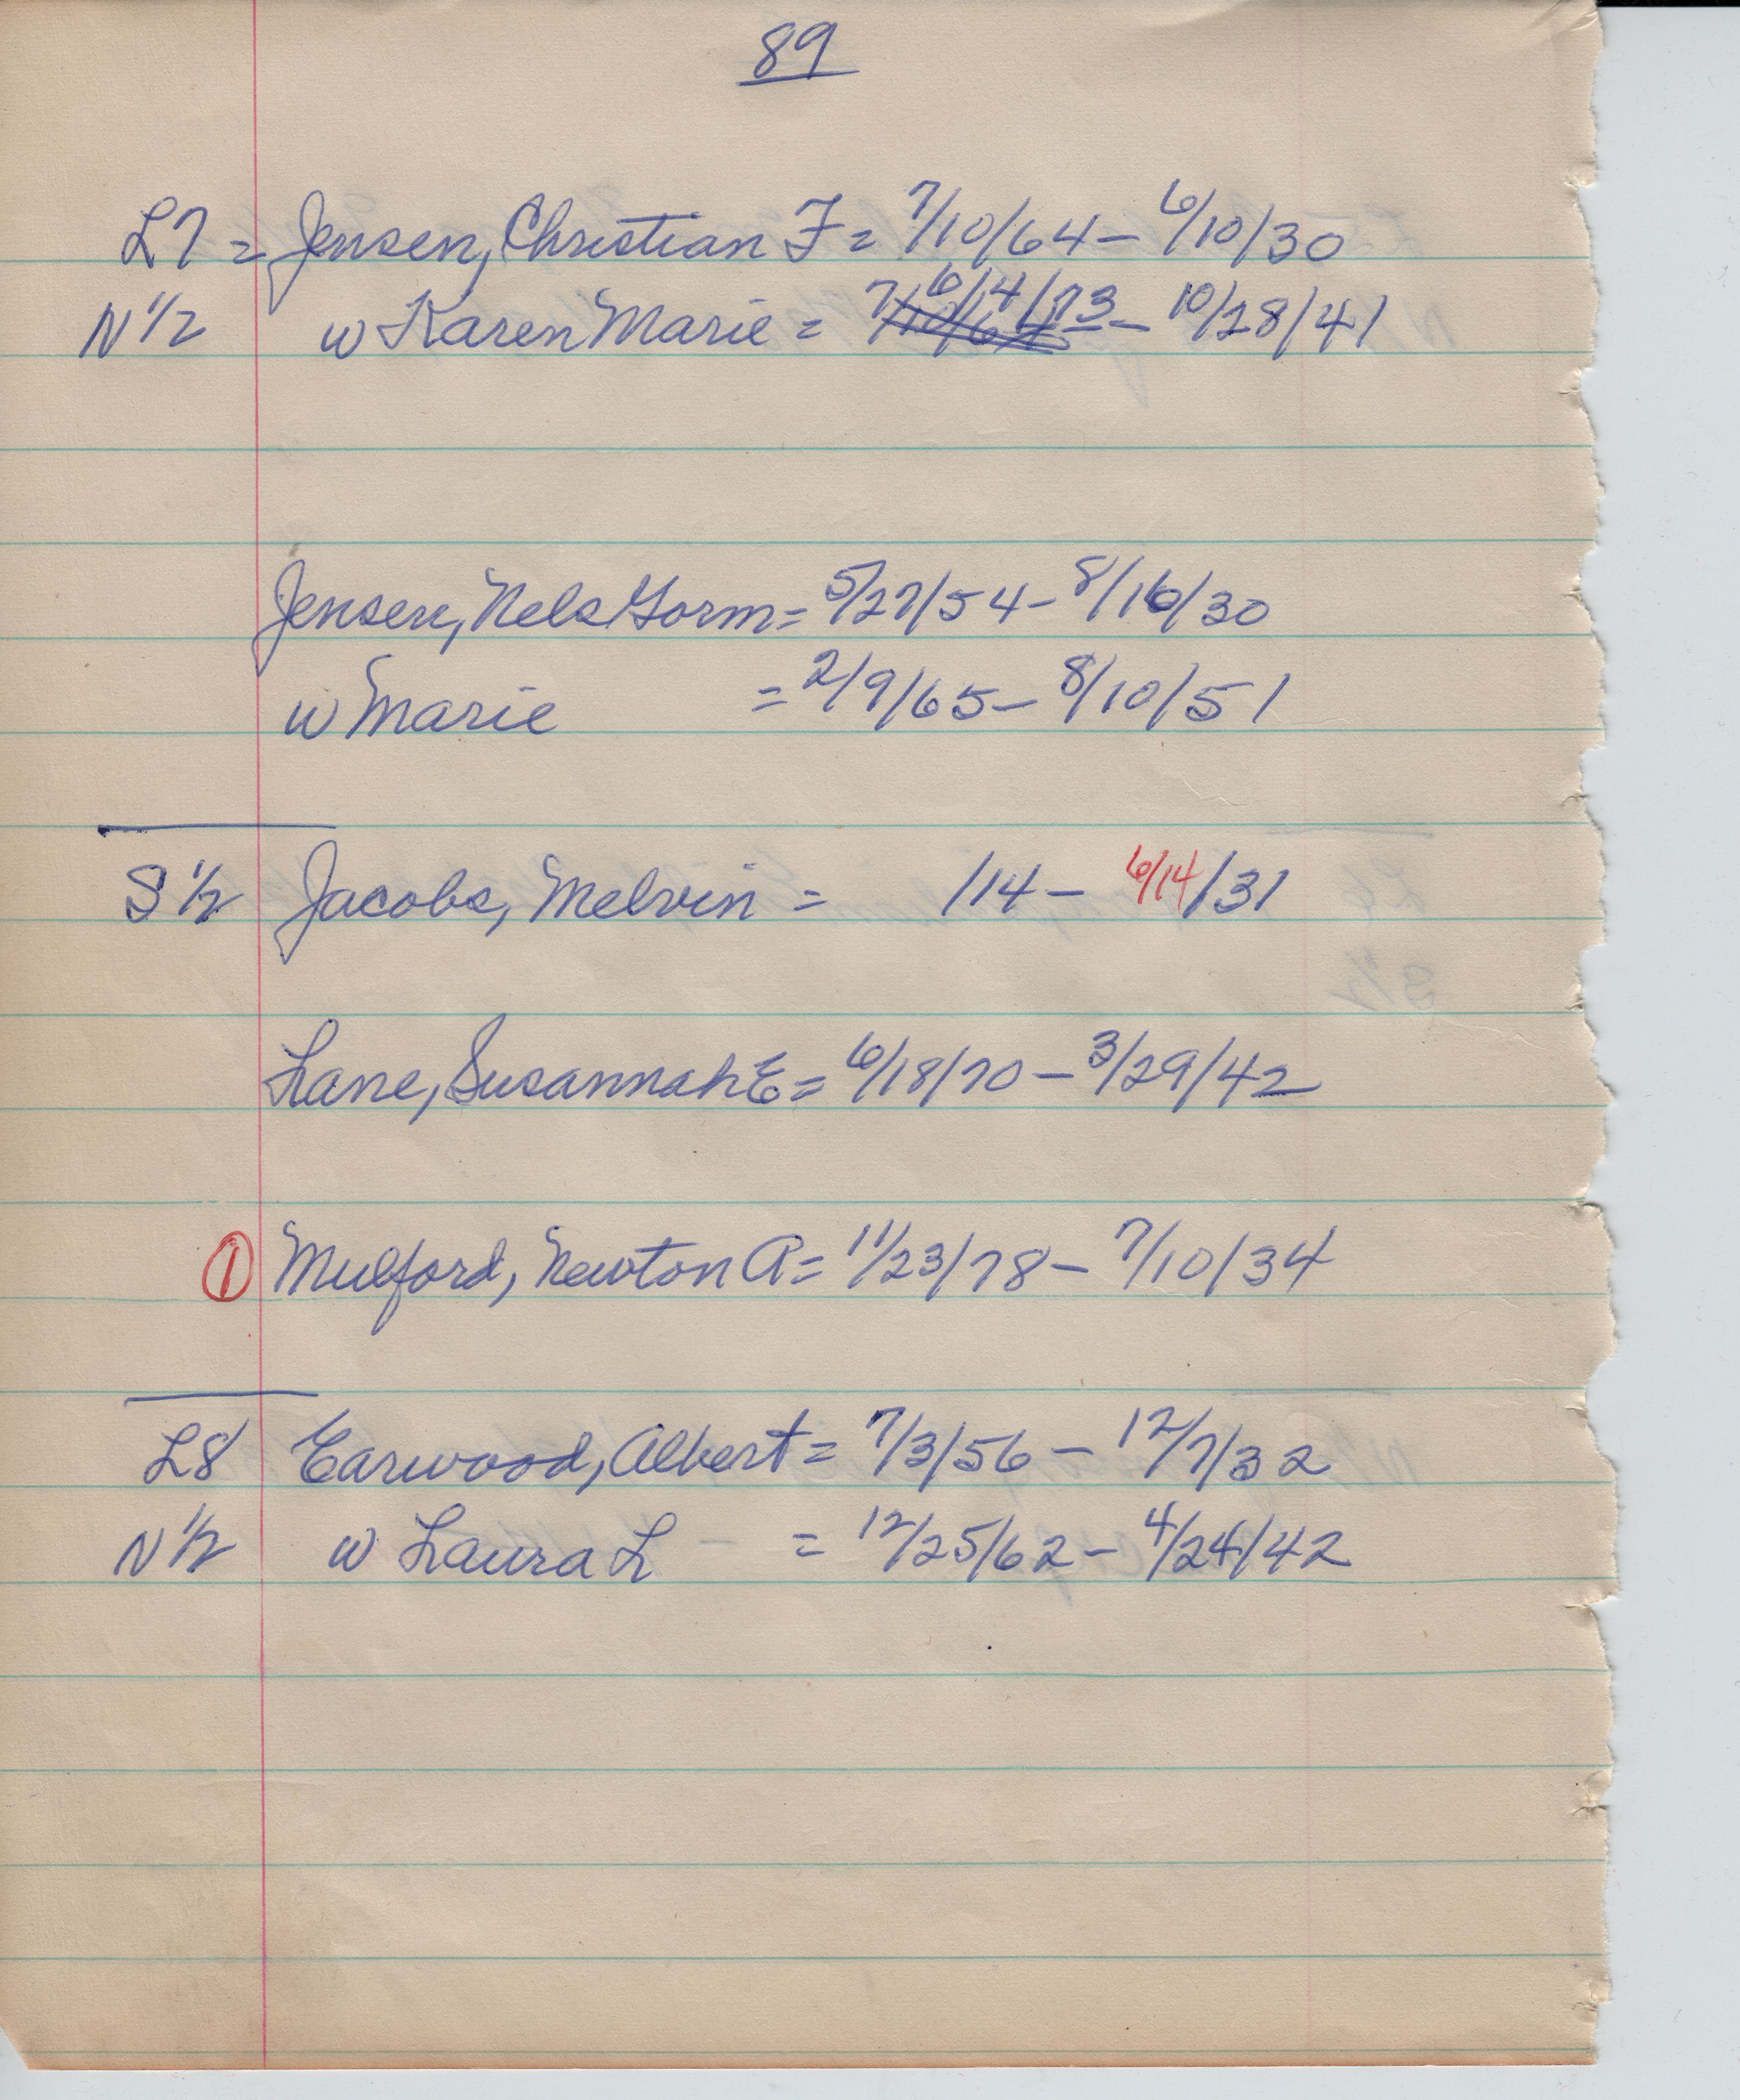 89
L7 = Jensen, Christian F = 7/10/64 - 6/10/30
N 1/2 w Karen Marie = 6/14/73 - 10/28/41
Jensen, Nels Gorm = 5/27/54 - 8/16/30
w Marie = 2/9/65 - 8/10/51
S 1/2 Jacobs, Melvin = /14 - 6/14/31
Lane, Susannah E = 6/18/70 - 3/29/42
1 Mulford, Newton A = 11/23/78 - 7/10/34
L8 Earwood, Albert = 7/3/56 - 12/7/32
N 1/2 w Laura L - = 12/25/62 - 4/24/42